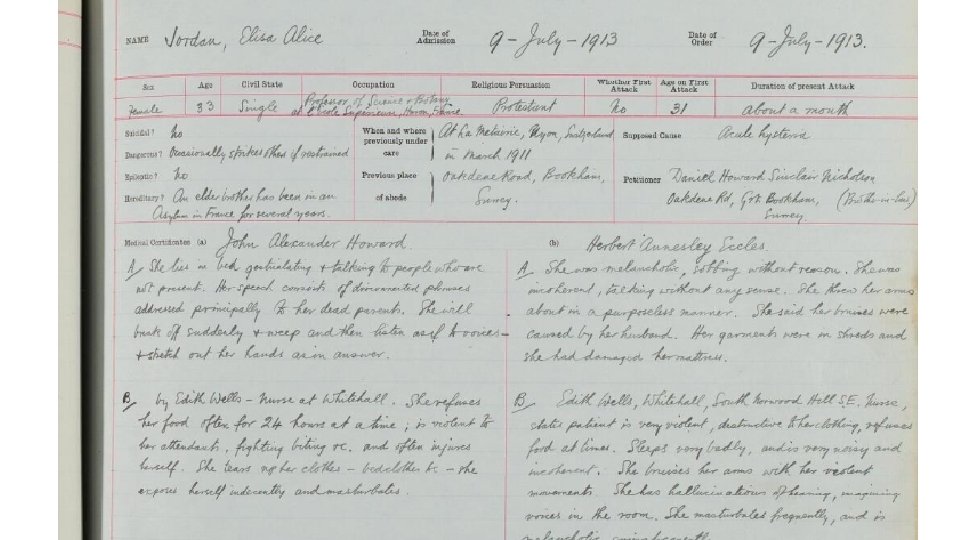 NAME Jordan, Elisa Alice Date of Admission 9 - July - 1913 Date of Order 9 - July - 1913.
Sex Age Civil State Occupation Religious Persuasion Whether First Attack Age on First Attack Duration of present Attack
Female 33 Single Professor of Science & Botany Protestant No 31 about a month
at Ecole Superieure,
Suicidal? No When and where previously under care At La Metairie, Nyon, Switzerland in March 1911 Supposed Cause Acute hysteria
Dangerous? Occasionally strikes others if restrained
Epileptic? No Previous place of abode Oakdene Road, Bookham, Surrey. Petitioner Daniel Howard Sinclair Nicholson
Hereditary? An elder brother has been in an Oakdene Rd, Grt. Bookham, (Brother-in-law)
Asylum in France for several years. Surrey
Medical Certificates (a) John Alexander Howard.
A/ She lies in bed gesticulating & talking to people who are
not present. Her speech consists of disconnected phrases
addressed principally to her dead parents. She will
break off suddenly & weep and then listen as if to voices -
& stretch out her hands as in answer.
B/ by Edith Wells - Nurse at Whitehall. She refuses
her food often for 24 hours at a time; is violent to
her attendants, fighting biting &c. and often injures
herself. She tears up her clothes - bedclothes &c - she
exposes herself indecently and masturbates.
(b) Herbert Annesley Eccles
A/ She was melancholic, sobbing without reason. She was
incoherent, talking without any sense. She threw her arms
about in a purposeless manner. She said her bruises were
caused by her husband. Her garments were in shreds and
she had damaged her mattress.
B/ Edith Wells, Whitehall, South Norwood Hill S.E. Nurse,
states patient is very violent, destructive to her clothing, refuses
food at times. Sleeps very badly, and is very noisy and
incoherent. She bruises her arms with her violent
movements. She has hallucinations of hearing, imagining
voices in the room. She masturbates frequently, and is
melancholic